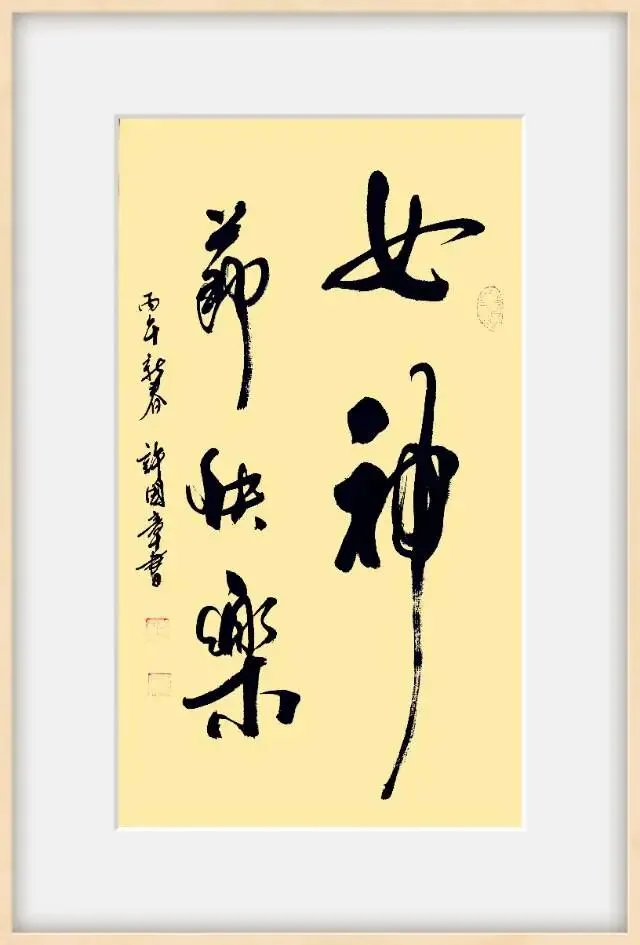 女神
節快樂
丙午新春 許國章書